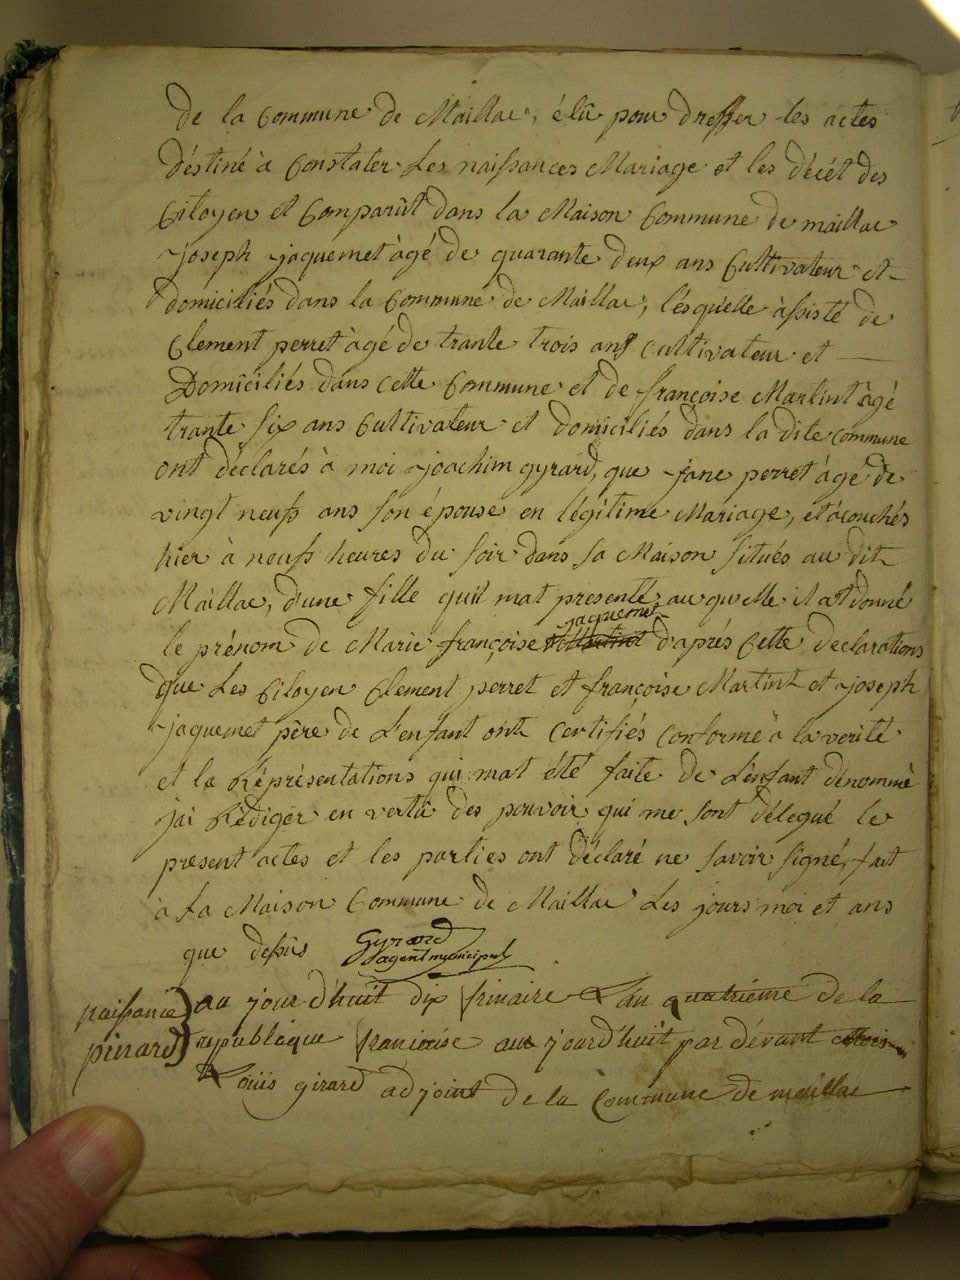 de la Commune de Maillac, élû pour dresser les actes
déstiné à Constater Les naissances Mariage et les décét des
Citoyen et Comparût dans la Maison Commune de maillac
joseph jaquemet àgé de quarante deux ans Cultivateur et
domiciliés dans la Commune de Maillac, lésquélle àssisté de
Clement perret àgé de trante trois ans cultivateur et
Domiciliés dans cette Commune et de françoise Martint àgé
trante six ans Cultivateur et domiciliés dans la dite commune
ont déclarés à moi joachim gyrard, que jane perret àgé de
vingt neufs ans son épouse en légitime Mariage, et acouchés
hier à neufs heures du soir dans sa Maison situés au dit
Maillac, d'une fille quil mat presenté, auquélle il at donné
jaquemet
le prénom de Marie françoise d'aprés Cette declarations
que Les Citoyen Clement perret et françoise Martint et joseph
jaquemet père de L'enfant ont Certifiés conforme à la verité
et la Réprésentations qui mat été faite de L'enfant dénommé
jai Rédiger en vertû des pouvoir qui me sont délegué le
present actes et les parties ont déclaré ne savoir signé, fait
à La Maison Commune de Maillac Les jours moi et ans
que dessus Gyrard
agent municipal
naissance au jour d'huit dix frimaire Lan quatriéme de la
pinard republique francoise au jourd'huit par dévant
Louis girard adjoint de la Commune de maillac